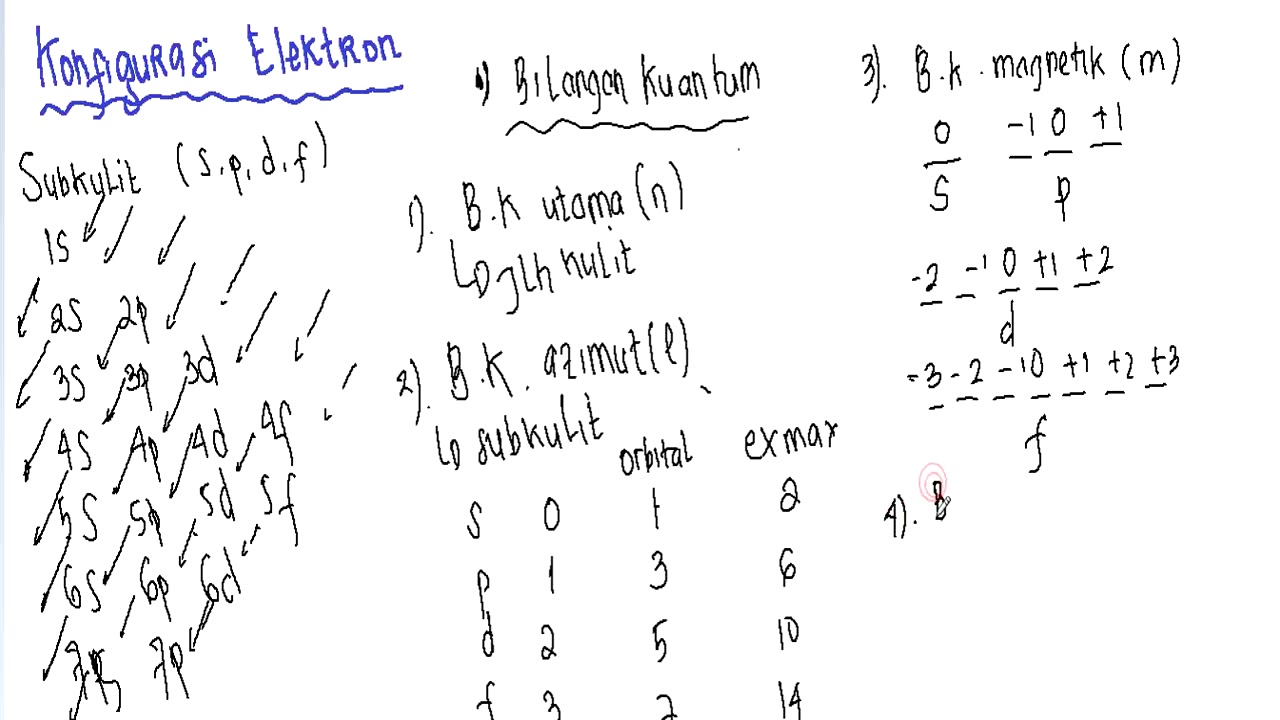 Konfigurasi Elektron
Subkulit (s, p, d, f)
1s
2s 2p
3s 3p 3d
4s 4p 4d 4f
5s 5p 5d 5f
6s 6p 6d
7p
Bilangan Kuantum
1). B.K utama (n)
jlh kulit
2). B.K. azimut (l)
subkulit
orbital exmax
s 0 1 2
p 1 3 6
d 2 5 10
f 3 14
3). B.k. magnetik (m)
0 -1 0 +1
s p
-2 -1 0 +1 +2
d
-3 -2 -1 0 +1 +2 +3
f
4). B